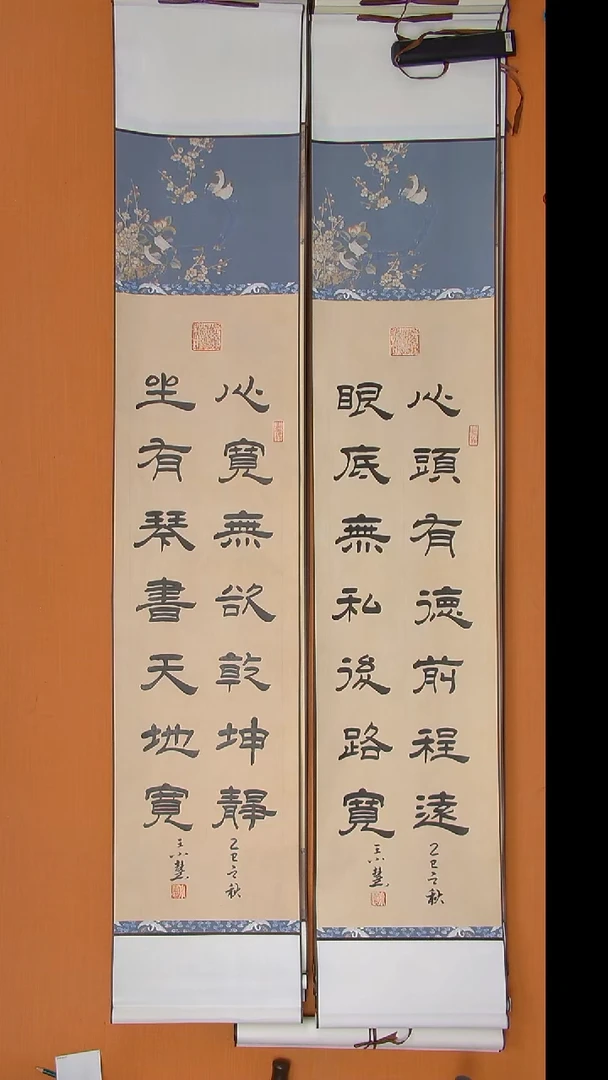 心頭有德前程遠
眼底無私後路寬
乙巳之秋
王小慧
心寬無欲乾坤靜
坐有琴書天地寬
乙巳之秋
王小慧